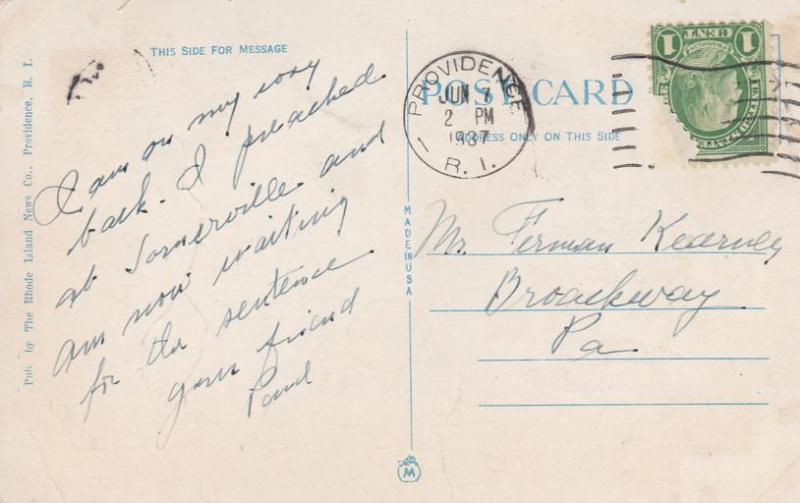 THIS SIDE FOR MESSAGE
I am on my way
back. I preached
at Somerville and
am now waiting
for the sentence
your friend
Paul
Pub. by The Rhode Island News Co., Providence, R. I.
MADE IN USA
M
POST CARD
ADDRESS ONLY ON THIS SIDE
PROVIDENCE
JUN 1
2 PM
1937
R. I.
1
1 CENT 1
Mr. Ferman Kearney
Broadway
Pa